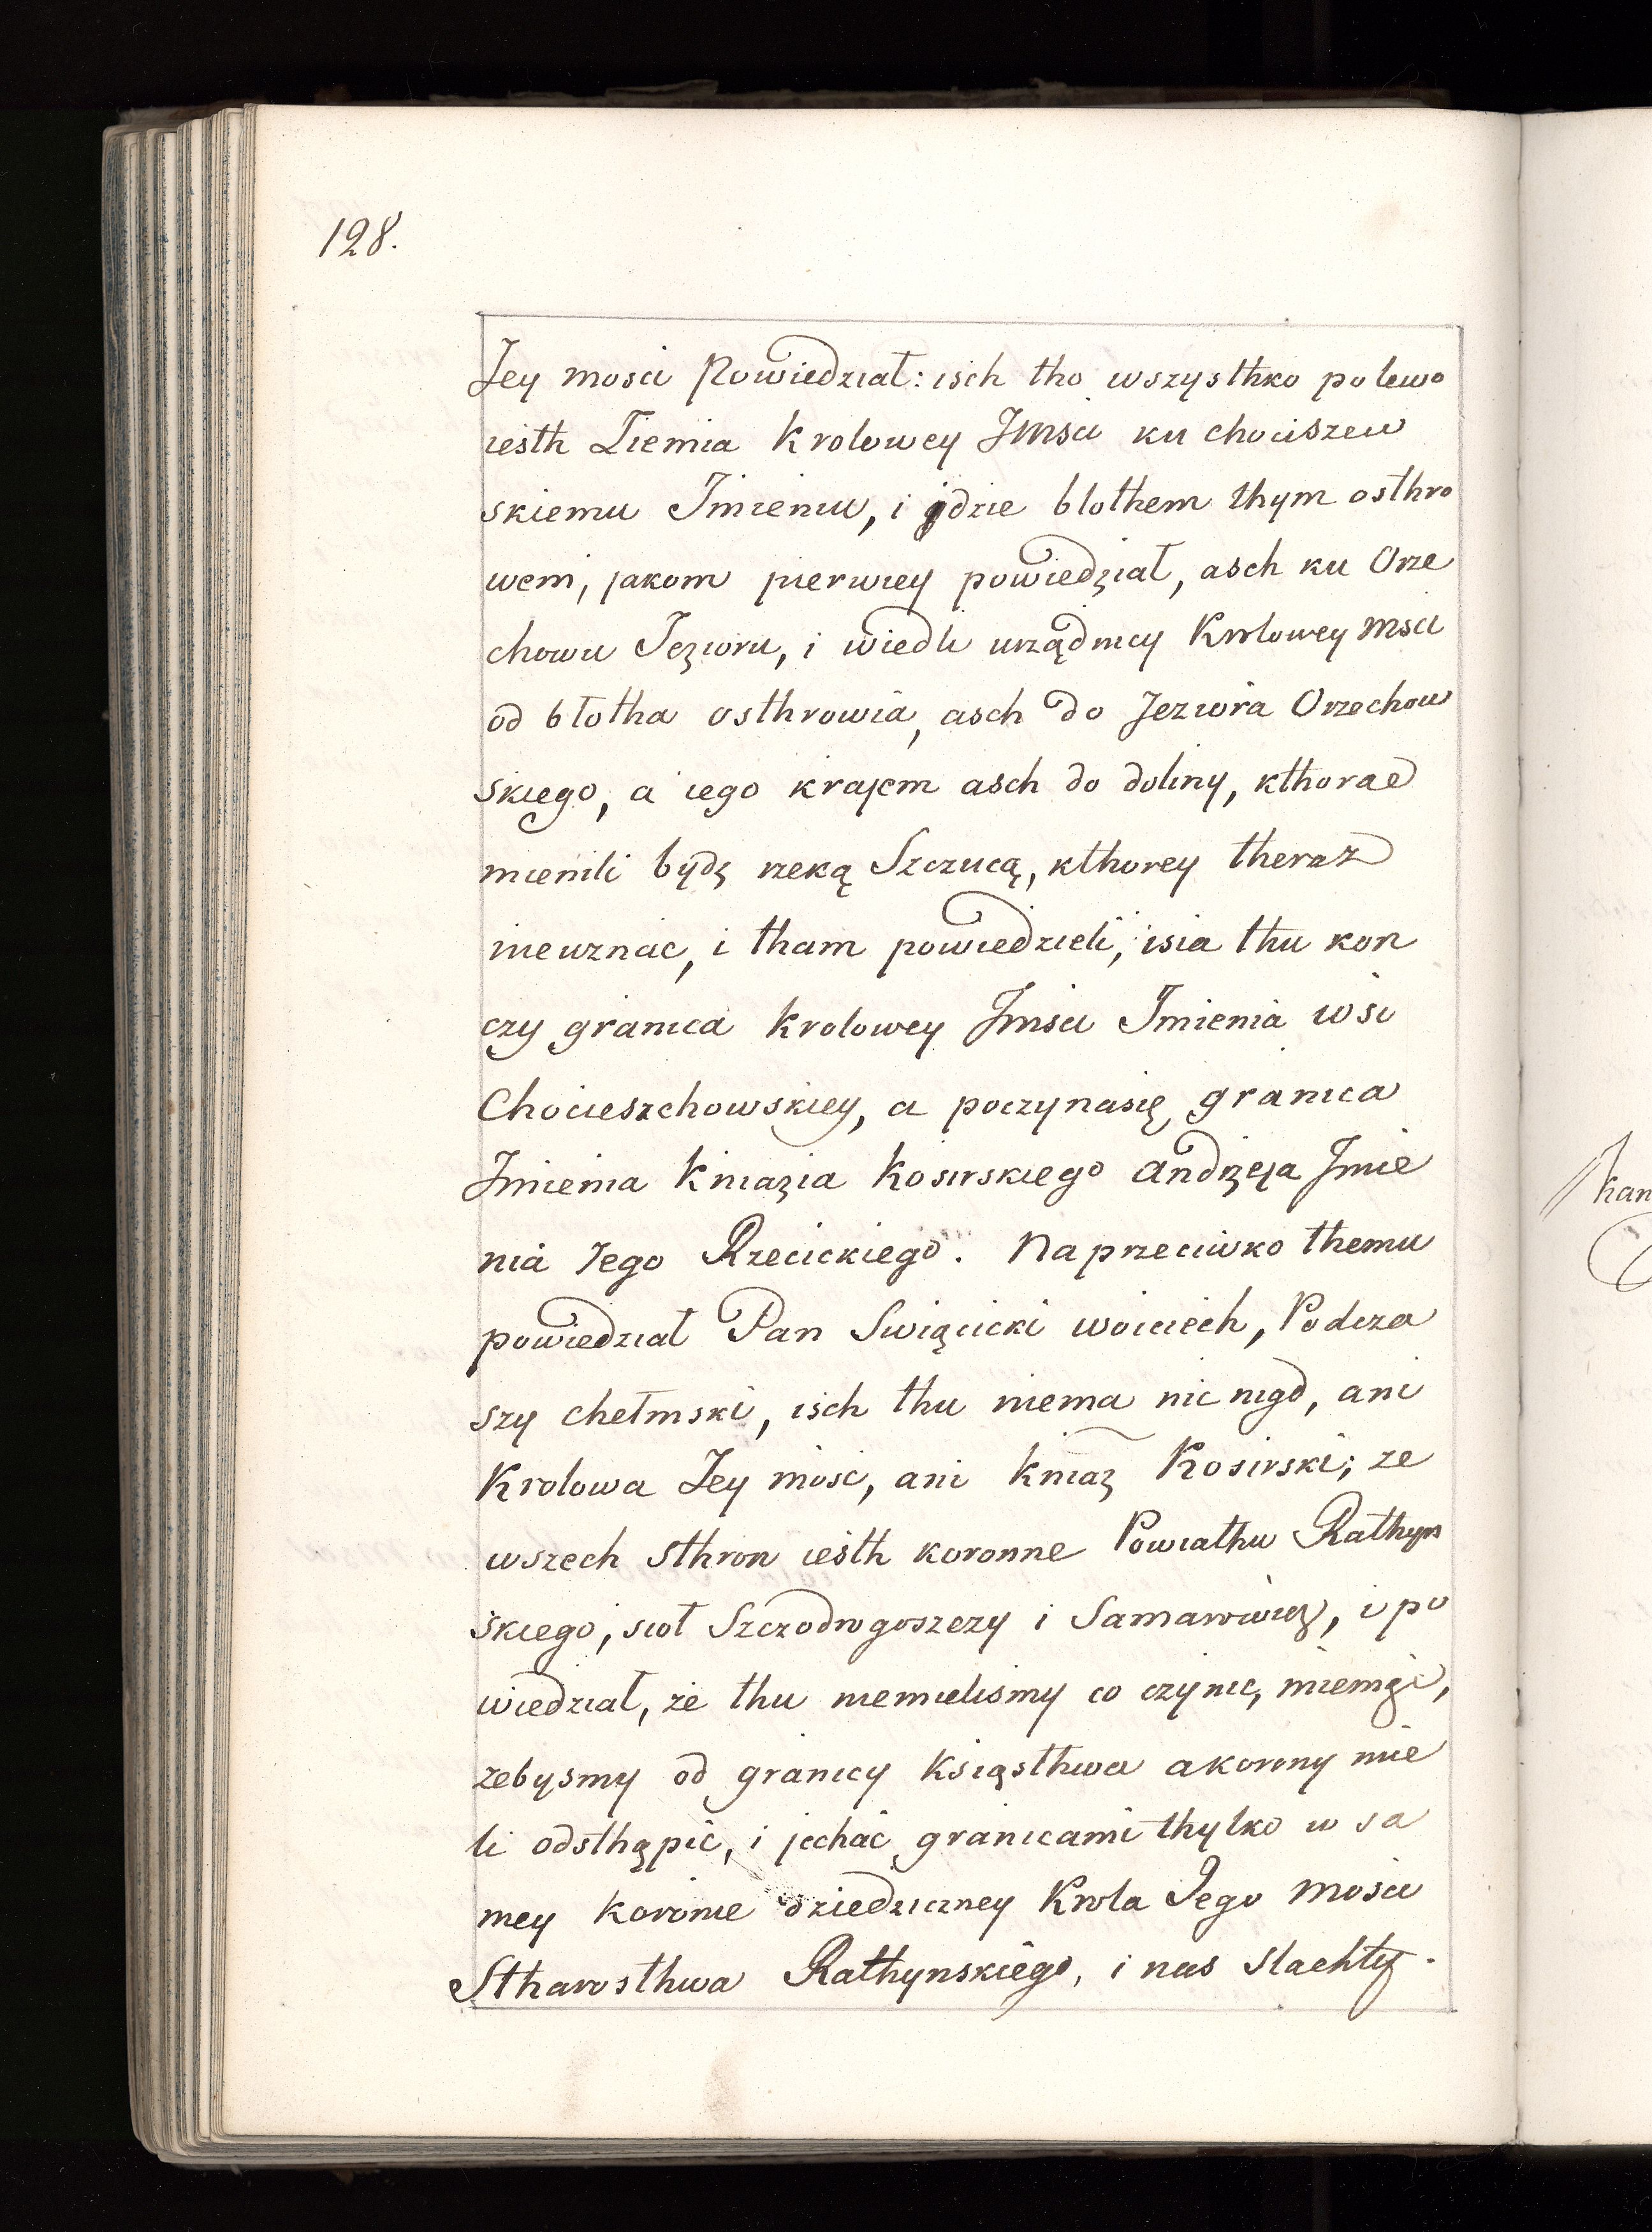 128.
Jey mosci Powiedział: isch tho wszysthko po lewo
iesth Ziemia Krolowey Jmsci ku chociszew
skiemu Jmieniu, i jdzie blothem thym osthro
wem, jakom pierwiey powiedział, asch ku Orze
chowu Jezioru, i wiedli urządnicy Krolowey Msci
od błotha osthrowia, asch do Jeziora Orzechow
skiego, a iego krajem asch do doliny, kthorae
mienili bydz rzeką Szczucą, kthorey theraz
nieuznac, i tham powiedzieli, isia thu kon
czy granica Krolowey Jmsci Jmienia wsi
Chocieszchowskiey, a poczynasię granica
Jmienia Kniazia Kosirskiego Andrzeja Jmie
nia Jego Rzecickiego. Naprzeciwko themu
powiedział Pan Swięcicki woiciech, Podcza
szy chełmski, isch thu niema nic nigd, ani
Krolowa Jey mosc, ani Kniaz Kosirski; ze
wszech sthron iesth koronne Powiathu Rathyn
skiego, sioł Szczodrogoszczy i Samarowicz, i po
wiedział, że thu niemielismy co czynic, niemgi,
zebysmy od granicy Księsthwa a korony mie
li odsthąpić, i jechać granicami thylko w sa
mey koronie dziedziczney Krola Jego Mosci
Stharosthwa Rathynskiego, i nas Slachty.
kan